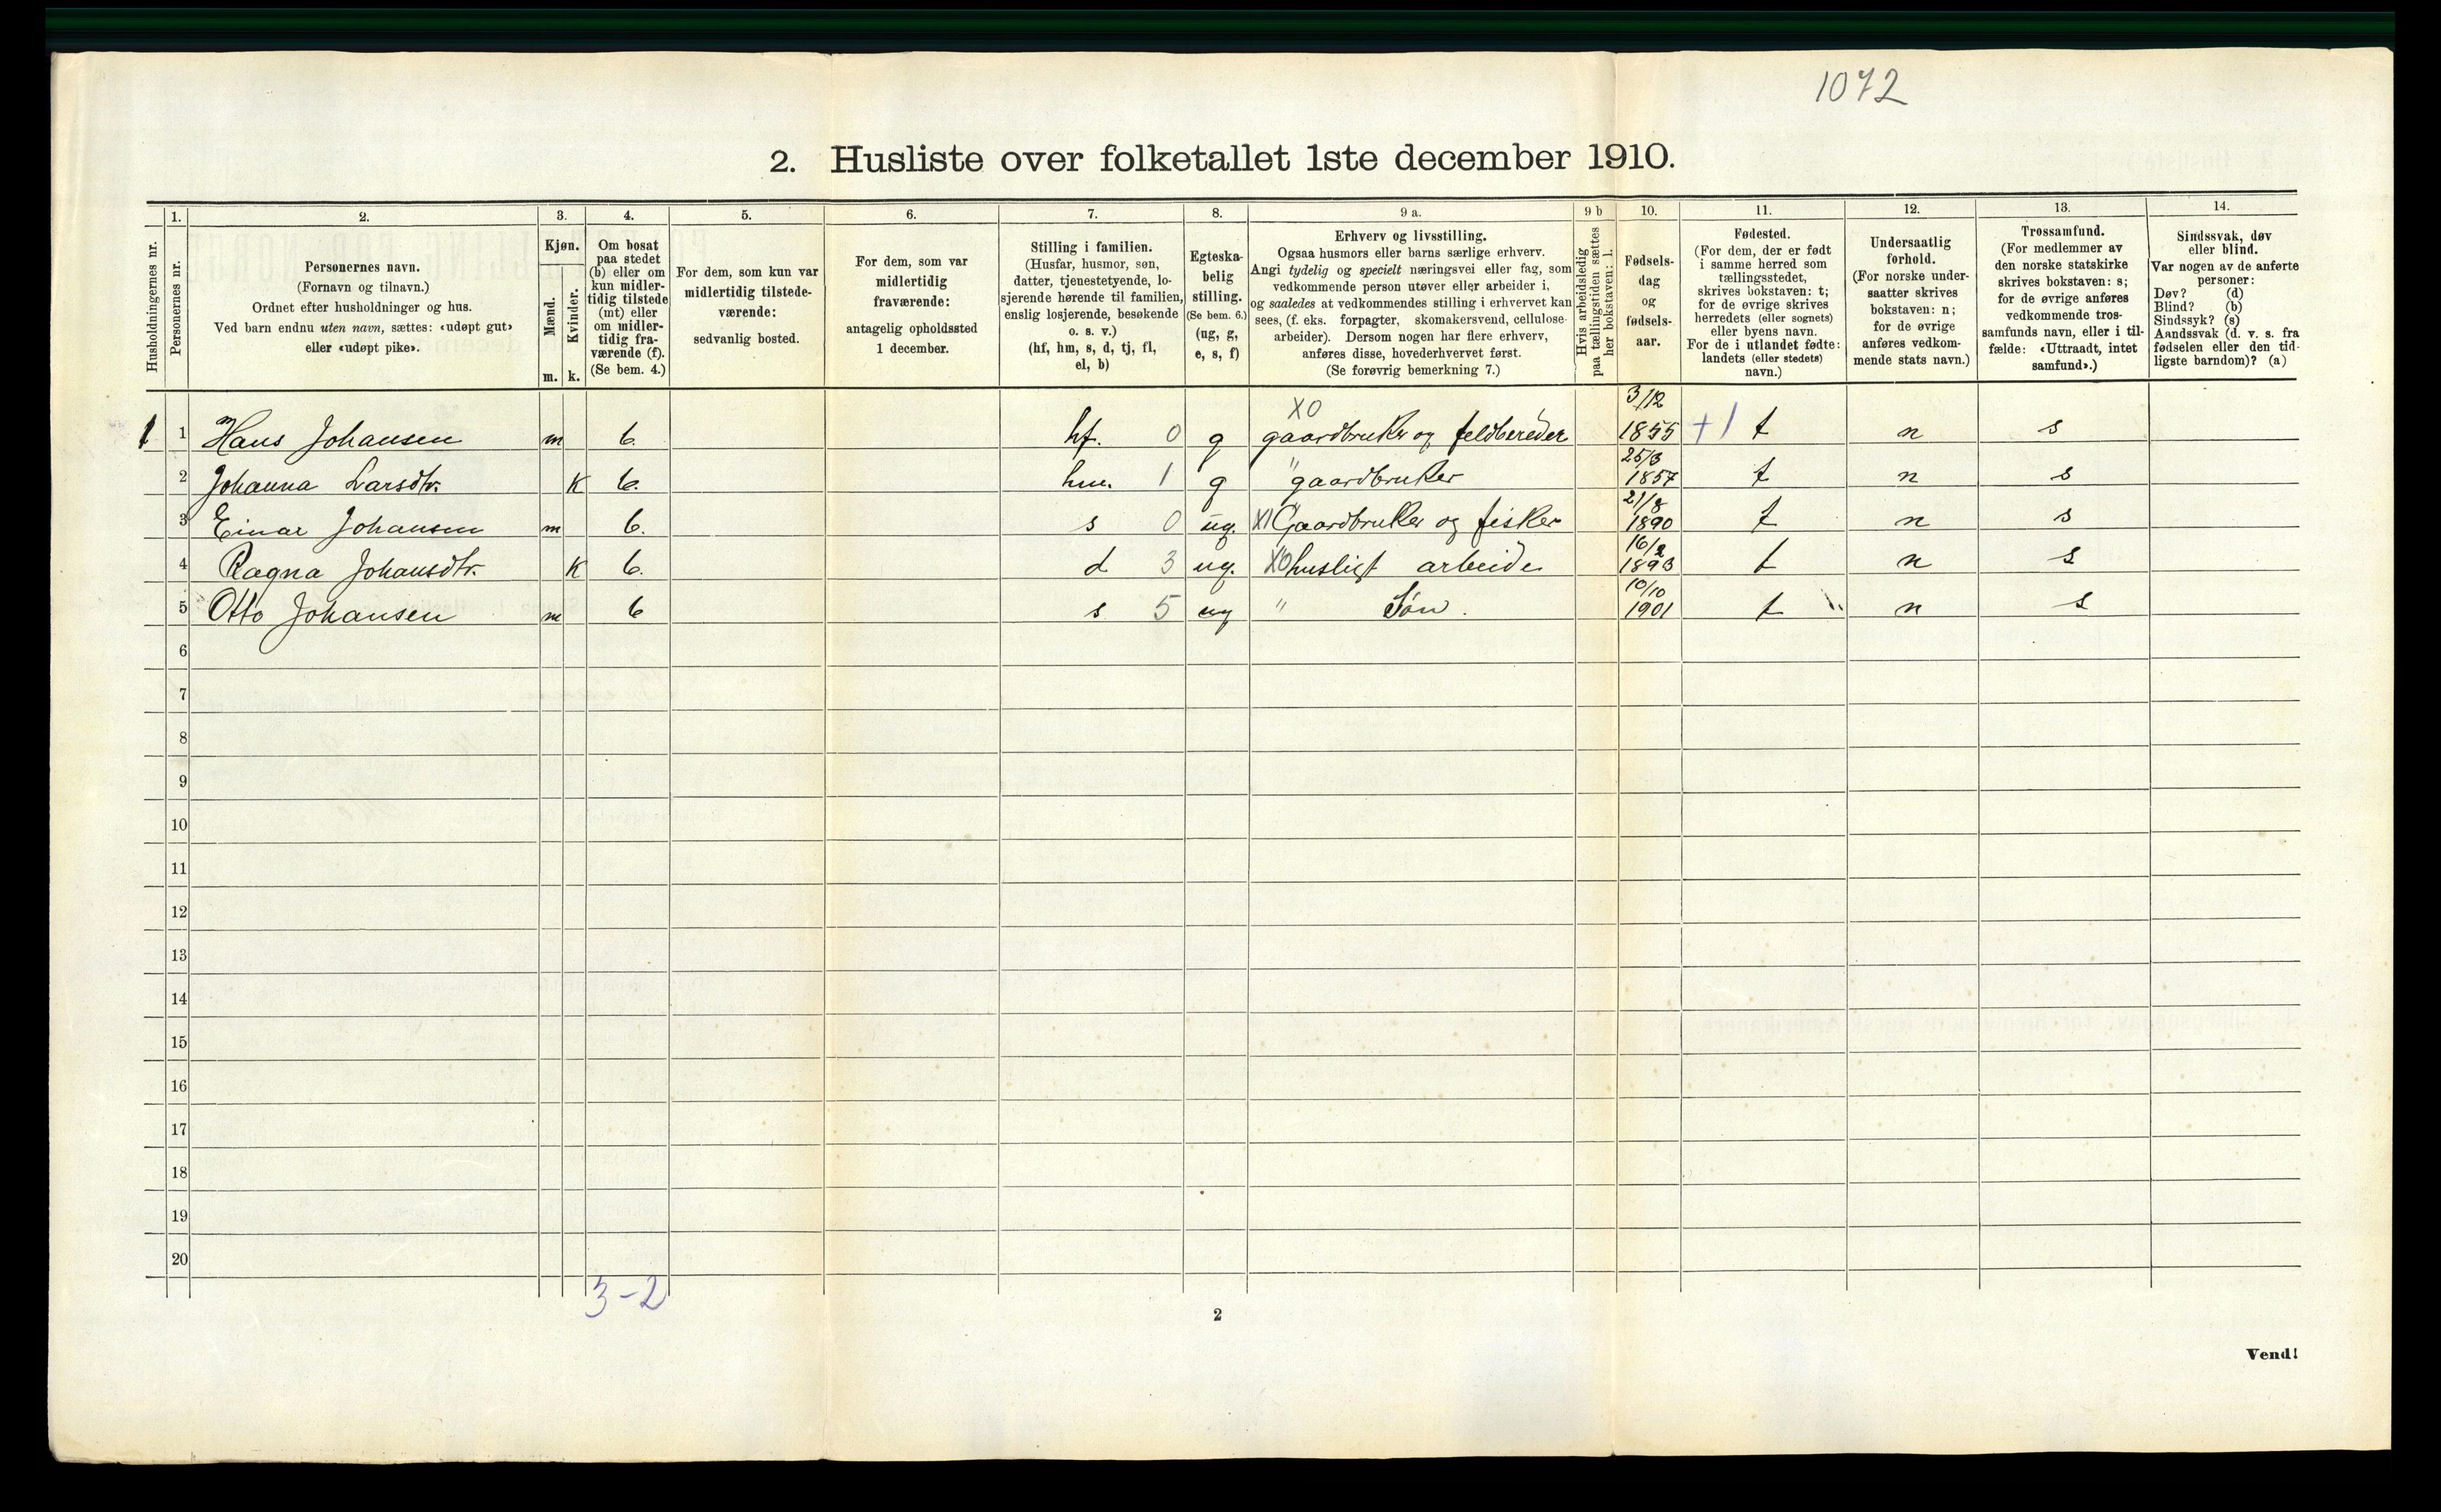 1072
2. Husliste over folketallet 1ste december 1910.
Husholdningernes nr.
1.
Personernes nr.
2.
Personernes navn.
(Fornavn og tilnavn.)
Ordnet efter husholdninger og hus.
Ved barn endnu uten navn, sættes: «udøpt gut»
eller «udøpt pike».
3.
Kjøn.
Mænd.
Kvinder.
m. k.
4.
Om bosat
paa stedet
(b) eller om
kun midler-
tidig tilstede
(mt) eller
om midler-
tidig fra-
værende (f).
(Se bem. 4.)
5.
For dem, som kun var
midlertidig tilstede-
værende:
sedvanlig bosted.
6.
For dem, som var
midlertidig
fraværende:
antagelig opholdssted
1 december.
7.
Stilling i familien.
(Husfar, husmor, søn,
datter, tjenestetyende, lo-
sjerende hørende til familien,
enslig losjerende, besøkende
o. s. v.)
(hf, hm, s, d, tj, fl,
el, b)
8.
Egteska-
belig
stilling.
(Se bem. 6.)
(ug, g,
e, s, f)
9 a.
Erhverv og livsstilling.
Ogsaa husmors eller barns særlige erhverv.
Angi tydelig og specielt næringsvei eller fag, som
vedkommende person utøver eller arbeider i,
og saaledes at vedkommendes stilling i erhvervet kan
sees, (f. eks. forpagter, skomakersvend, cellulose-
arbeider). Dersom nogen har flere erhverv,
anføres disse, hovederhvervet først.
(Se forøvrig bemerkning 7.)
9 b
Hvis arbeidsledig
paa tællingstiden sættes
her bokstaven: l.
10.
Fødsels-
dag
og
fødsels-
aar.
11.
Fødested.
(For dem, der er født
i samme herred som
tællingsstedet,
skrives bokstaven: t;
for de øvrige skrives
herredets (eller sognets)
eller byens navn.
For de i utlandet fødte:
landets (eller stedets)
navn.)
12.
Undersaatlig
forhold.
(For norske under-
saatter skrives
bokstaven: n;
for de øvrige
anføres vedkom-
mende stats navn.)
13.
Trossamfund.
(For medlemmer av
den norske statskirke
skrives bokstaven: s;
for de øvrige anføres
vedkommende tros-
samfunds navn, eller i til-
fælde: «Uttraadt, intet
samfund».)
14.
Sindssvak, døv
eller blind.
Var nogen av de anførte
personer:
Døv? (d)
Blind? (b)
Sindssyk? (s)
Aandssvak (d. v. s. fra
fødselen eller den tid-
ligste barndom)? (a)
1 1 Hans Johansen m b. hf. 0 g X0 gaardbruker og feldbereder 3/12 1855 +1 t n s
2 Johanna Larsdtr. K b. hm. 1 g " gaardbruker 25/3 1857 t n s
3 Einar Johansen m b. s 0 ug. X1 Gaardbruker og fisker 21/8 1890 t n s
4 Ragna Johansdtr. K b. d 3 ug. X0 husligt arbeide 16/2 1893 t n s
5 Otto Johansen m b s 5 ug " Søn. 10/10 1901 t n s
6
7
8
9
10
11
12
13
14
15
16
17
18
19
20
3-2
2
Vend!